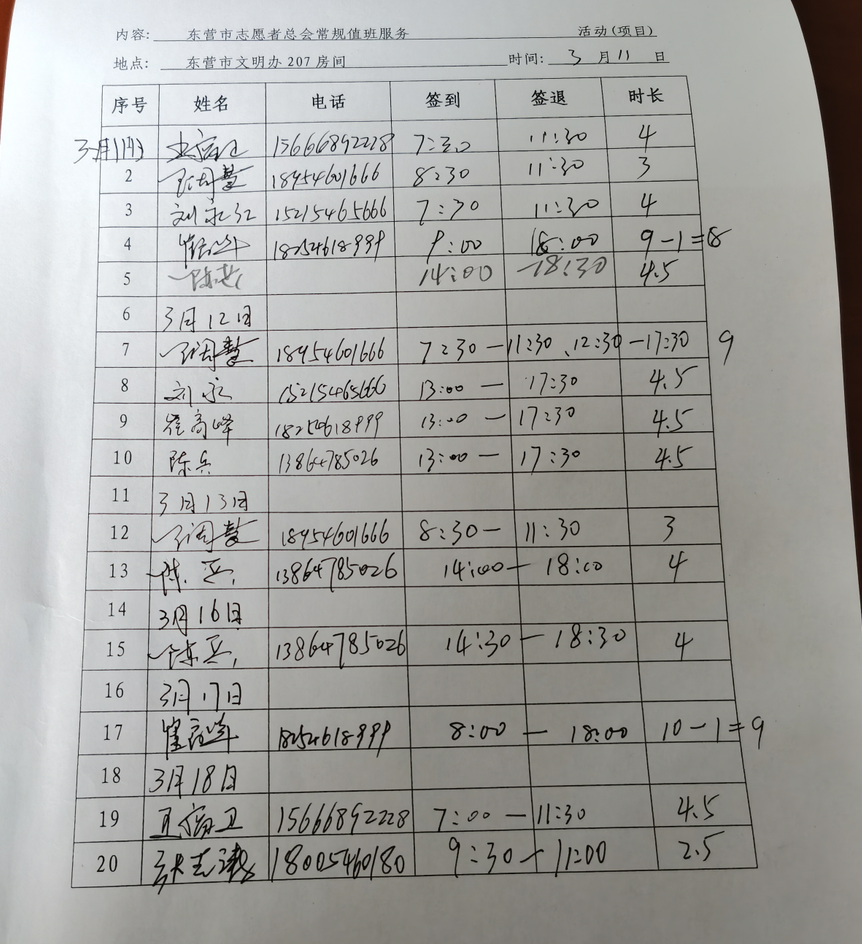 内容: 东营市志愿者总会常规值班服务 活动(项目)
地点: 东营市文明办207房间 时间: 3 月 11 日
序号 姓名 电话 签到 签退 时长
3月11日 15666892228 7:30 11:30 4
2 18954601666 8:30 11:30 3
3 刘永红 15215465666 7:30 11:30 4
4 18254618999 9:00 18:00 9-1=8
5 陈兵 14:00 -18:30 4.5
6 3月12日
7 18954601666 7:30-11:30、12:30-17:30 9
8 刘永 15215465666 13:00- 17:30 4.5
9 崔高峰 18254618999 13:00-17:30 4.5
10 陈兵 13864785026 13:00-17:30 4.5
11 3月13日
12 18954601666 8:30-11:30 3
13 陈兵 13864785026 14:00-18:00 4
14 3月16日
15 陈兵 13864785026 14:30-18:30 4
16 3月17日
17 崔高峰 18254618999 8:00-18:00 10-1=9
18 3月18日
19 15666892228 7:00-11:30 4.5
20 18005460180 9:30-11:00 2.5